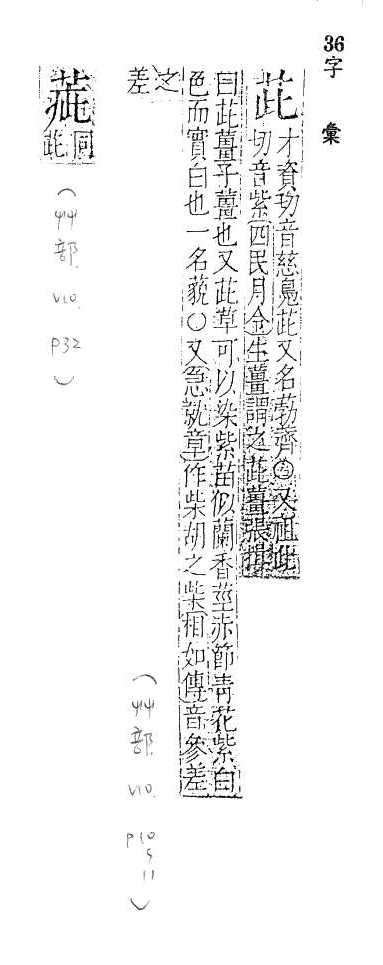 36字彙
茈 才資切音慈鳧茈又名葧齊○又祖此
切音紫四民月令生薑謂之茈薑張揖
曰茈薑子薑也又茈草可以染紫苗似蘭香莖赤節青花紫白
色而實白也一名藐○又急就章作柴胡之柴相如傳音參差
之差
(艸部 V10. P10 11)
𦶉 同茈
(艸部. V10. P32)